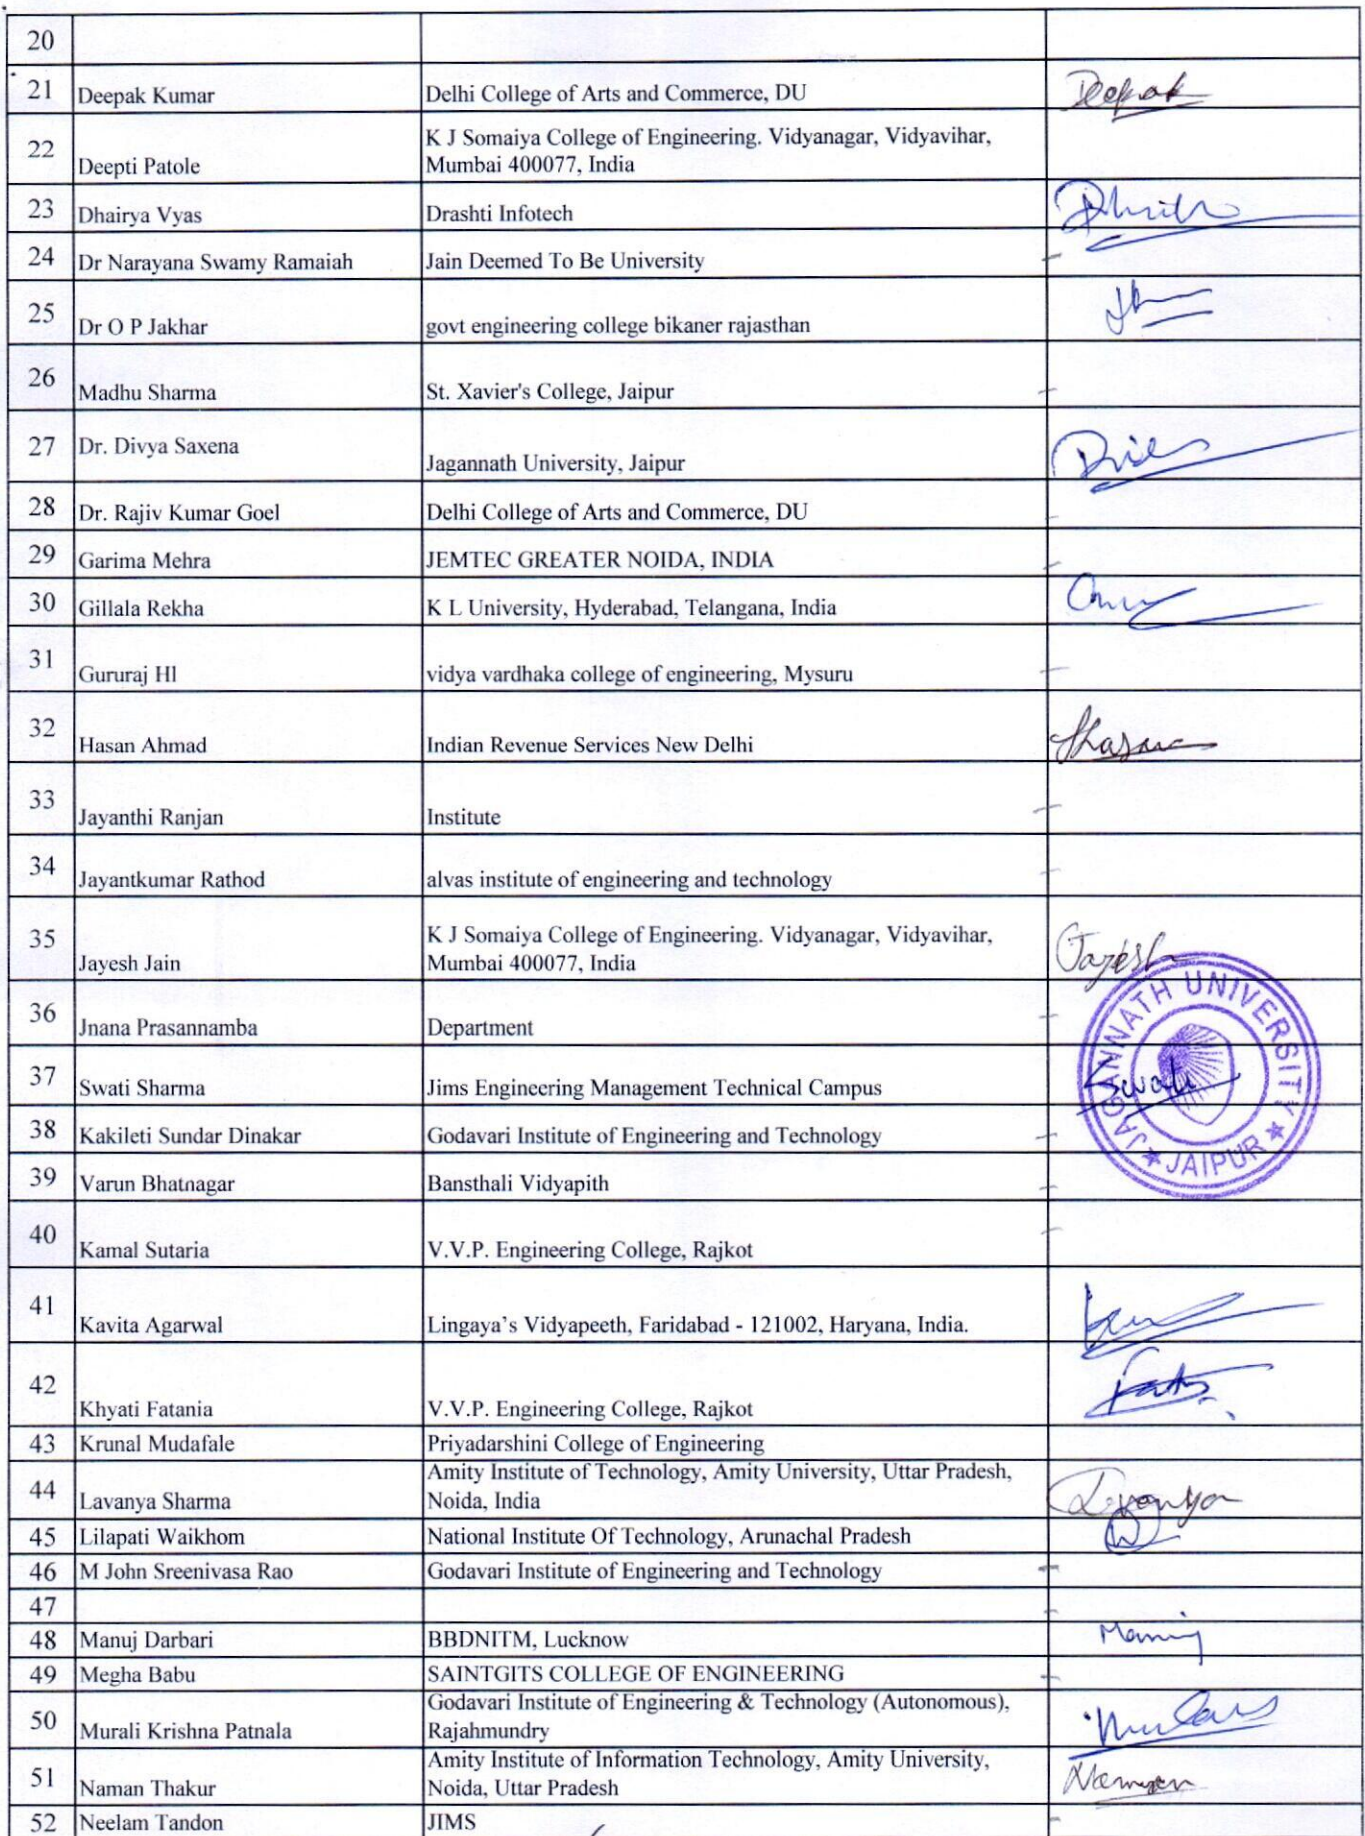 20
21 Deepak Kumar Delhi College of Arts and Commerce, DU Deepak
22 Deepti Patole K J Somaiya College of Engineering. Vidyanagar, Vidyavihar,
Mumbai 400077, India
23 Dhairya Vyas Drashti Infotech
24 Dr Narayana Swamy Ramaiah Jain Deemed To Be University
25 Dr O P Jakhar govt engineering college bikaner rajasthan
26 Madhu Sharma St. Xavier's College, Jaipur
27 Dr. Divya Saxena Jagannath University, Jaipur
28 Dr. Rajiv Kumar Goel Delhi College of Arts and Commerce, DU
29 Garima Mehra JEMTEC GREATER NOIDA, INDIA
30 Gillala Rekha K L University, Hyderabad, Telangana, India
31 Gururaj Hl vidya vardhaka college of engineering, Mysuru
32 Hasan Ahmad Indian Revenue Services New Delhi
33 Jayanthi Ranjan Institute
34 Jayantkumar Rathod alvas institute of engineering and technology
35 Jayesh Jain K J Somaiya College of Engineering. Vidyanagar, Vidyavihar,
Mumbai 400077, India Jayesh
36 Jnana Prasannamba Department
JAGANNATH UNIVERSITY
★ JAIPUR ★
37 Swati Sharma Jims Engineering Management Technical Campus Swati
38 Kakileti Sundar Dinakar Godavari Institute of Engineering and Technology
39 Varun Bhatnagar Bansthali Vidyapith
40 Kamal Sutaria V.V.P. Engineering College, Rajkot
41 Kavita Agarwal Lingaya's Vidyapeeth, Faridabad - 121002, Haryana, India.
42 Khyati Fatania V.V.P. Engineering College, Rajkot
43 Krunal Mudafale Priyadarshini College of Engineering
44 Lavanya Sharma Amity Institute of Technology, Amity University, Uttar Pradesh,
Noida, India
45 Lilapati Waikhom National Institute Of Technology, Arunachal Pradesh
46 M John Sreenivasa Rao Godavari Institute of Engineering and Technology
47
48 Manuj Darbari BBDNITM, Lucknow
49 Megha Babu SAINTGITS COLLEGE OF ENGINEERING
50 Murali Krishna Patnala Godavari Institute of Engineering & Technology (Autonomous),
Rajahmundry
51 Naman Thakur Amity Institute of Information Technology, Amity University,
Noida, Uttar Pradesh
52 Neelam Tandon JIMS